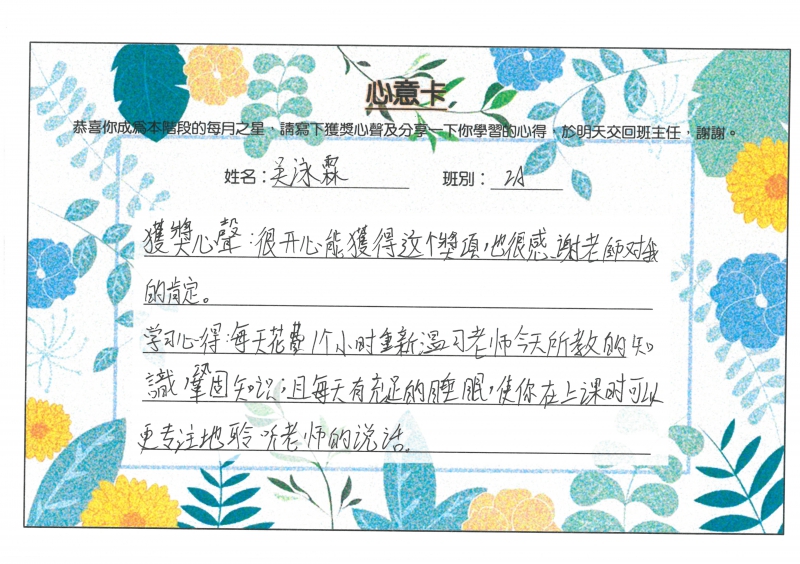 心意卡
恭喜你成為本階段的每月之星，請寫下獲獎心聲及分享一下你學習的心得，於明天交回班主任，謝謝。
姓名：吴泳霖 班別：2A
獲獎心聲：很开心能獲得这个獎項，也很感謝老師对我
的肯定。
学习心得：每天花費1个小时重新溫习老师今天所教的知
識，鞏固知识；且每天有充足的睡眠，使你在上课时可以
更专注地聆听老师的说话。